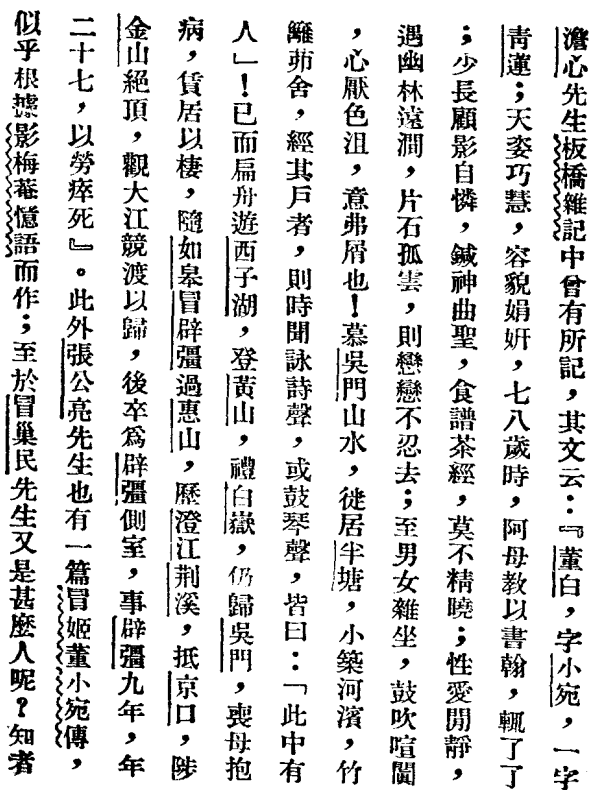 澹心先生板橋雜記中曾有所記，其文云：『董白，字小宛，一字
靑蓮；天姿巧慧，容貌娟姸，七八歲時，阿母教以書翰，輒了了
；少長顧影自憐，鍼神曲聖，食譜茶經，莫不精曉；性愛閒靜，
遇幽林遠澗，片石孤雲，則戀戀不忍去；至男女雜坐，鼓吹喧闐
，心厭色沮，意弗屑也！慕吳門山水，徙居半塘，小築河濱，竹
籬茆舍，經其戶者，則時聞詠詩聲，或鼓琴聲，皆曰：「此中有
人」！已而扁舟遊西子湖，登黃山，禮白嶽，仍歸吳門，喪母抱
病，賃居以棲，隨如皋冒辟彊過惠山，歷澄江荆溪，抵京口，陟
金山絕頂，觀大江競渡以歸，後卒爲辟彊側室，事辟彊九年，年
二十七，以勞瘁死』。此外張公亮先生也有一篇冒姬董小宛傳，
似乎根據影梅菴憶語而作；至於冒巢民先生又是甚麼人呢？知者